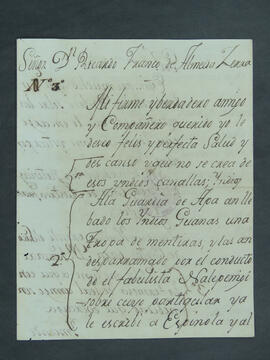 Señor Dn Ricardo Franco de Almeida Serra
No 3o
Mi firme y berdadero amigo
y Compañero querido yo le
deseo felis y perfecta Salud y
descanso y que no se crea de
esos yndios canallas; Yndios
Ala Guardia de Apa an lle
bado los Yndios Guanas una
Tropa de mentiras, y las an
desparramado por el conducto
de el fabulista Nalepenigi
2o
sobre cuyo particular ya
le escribi a Espinola y al